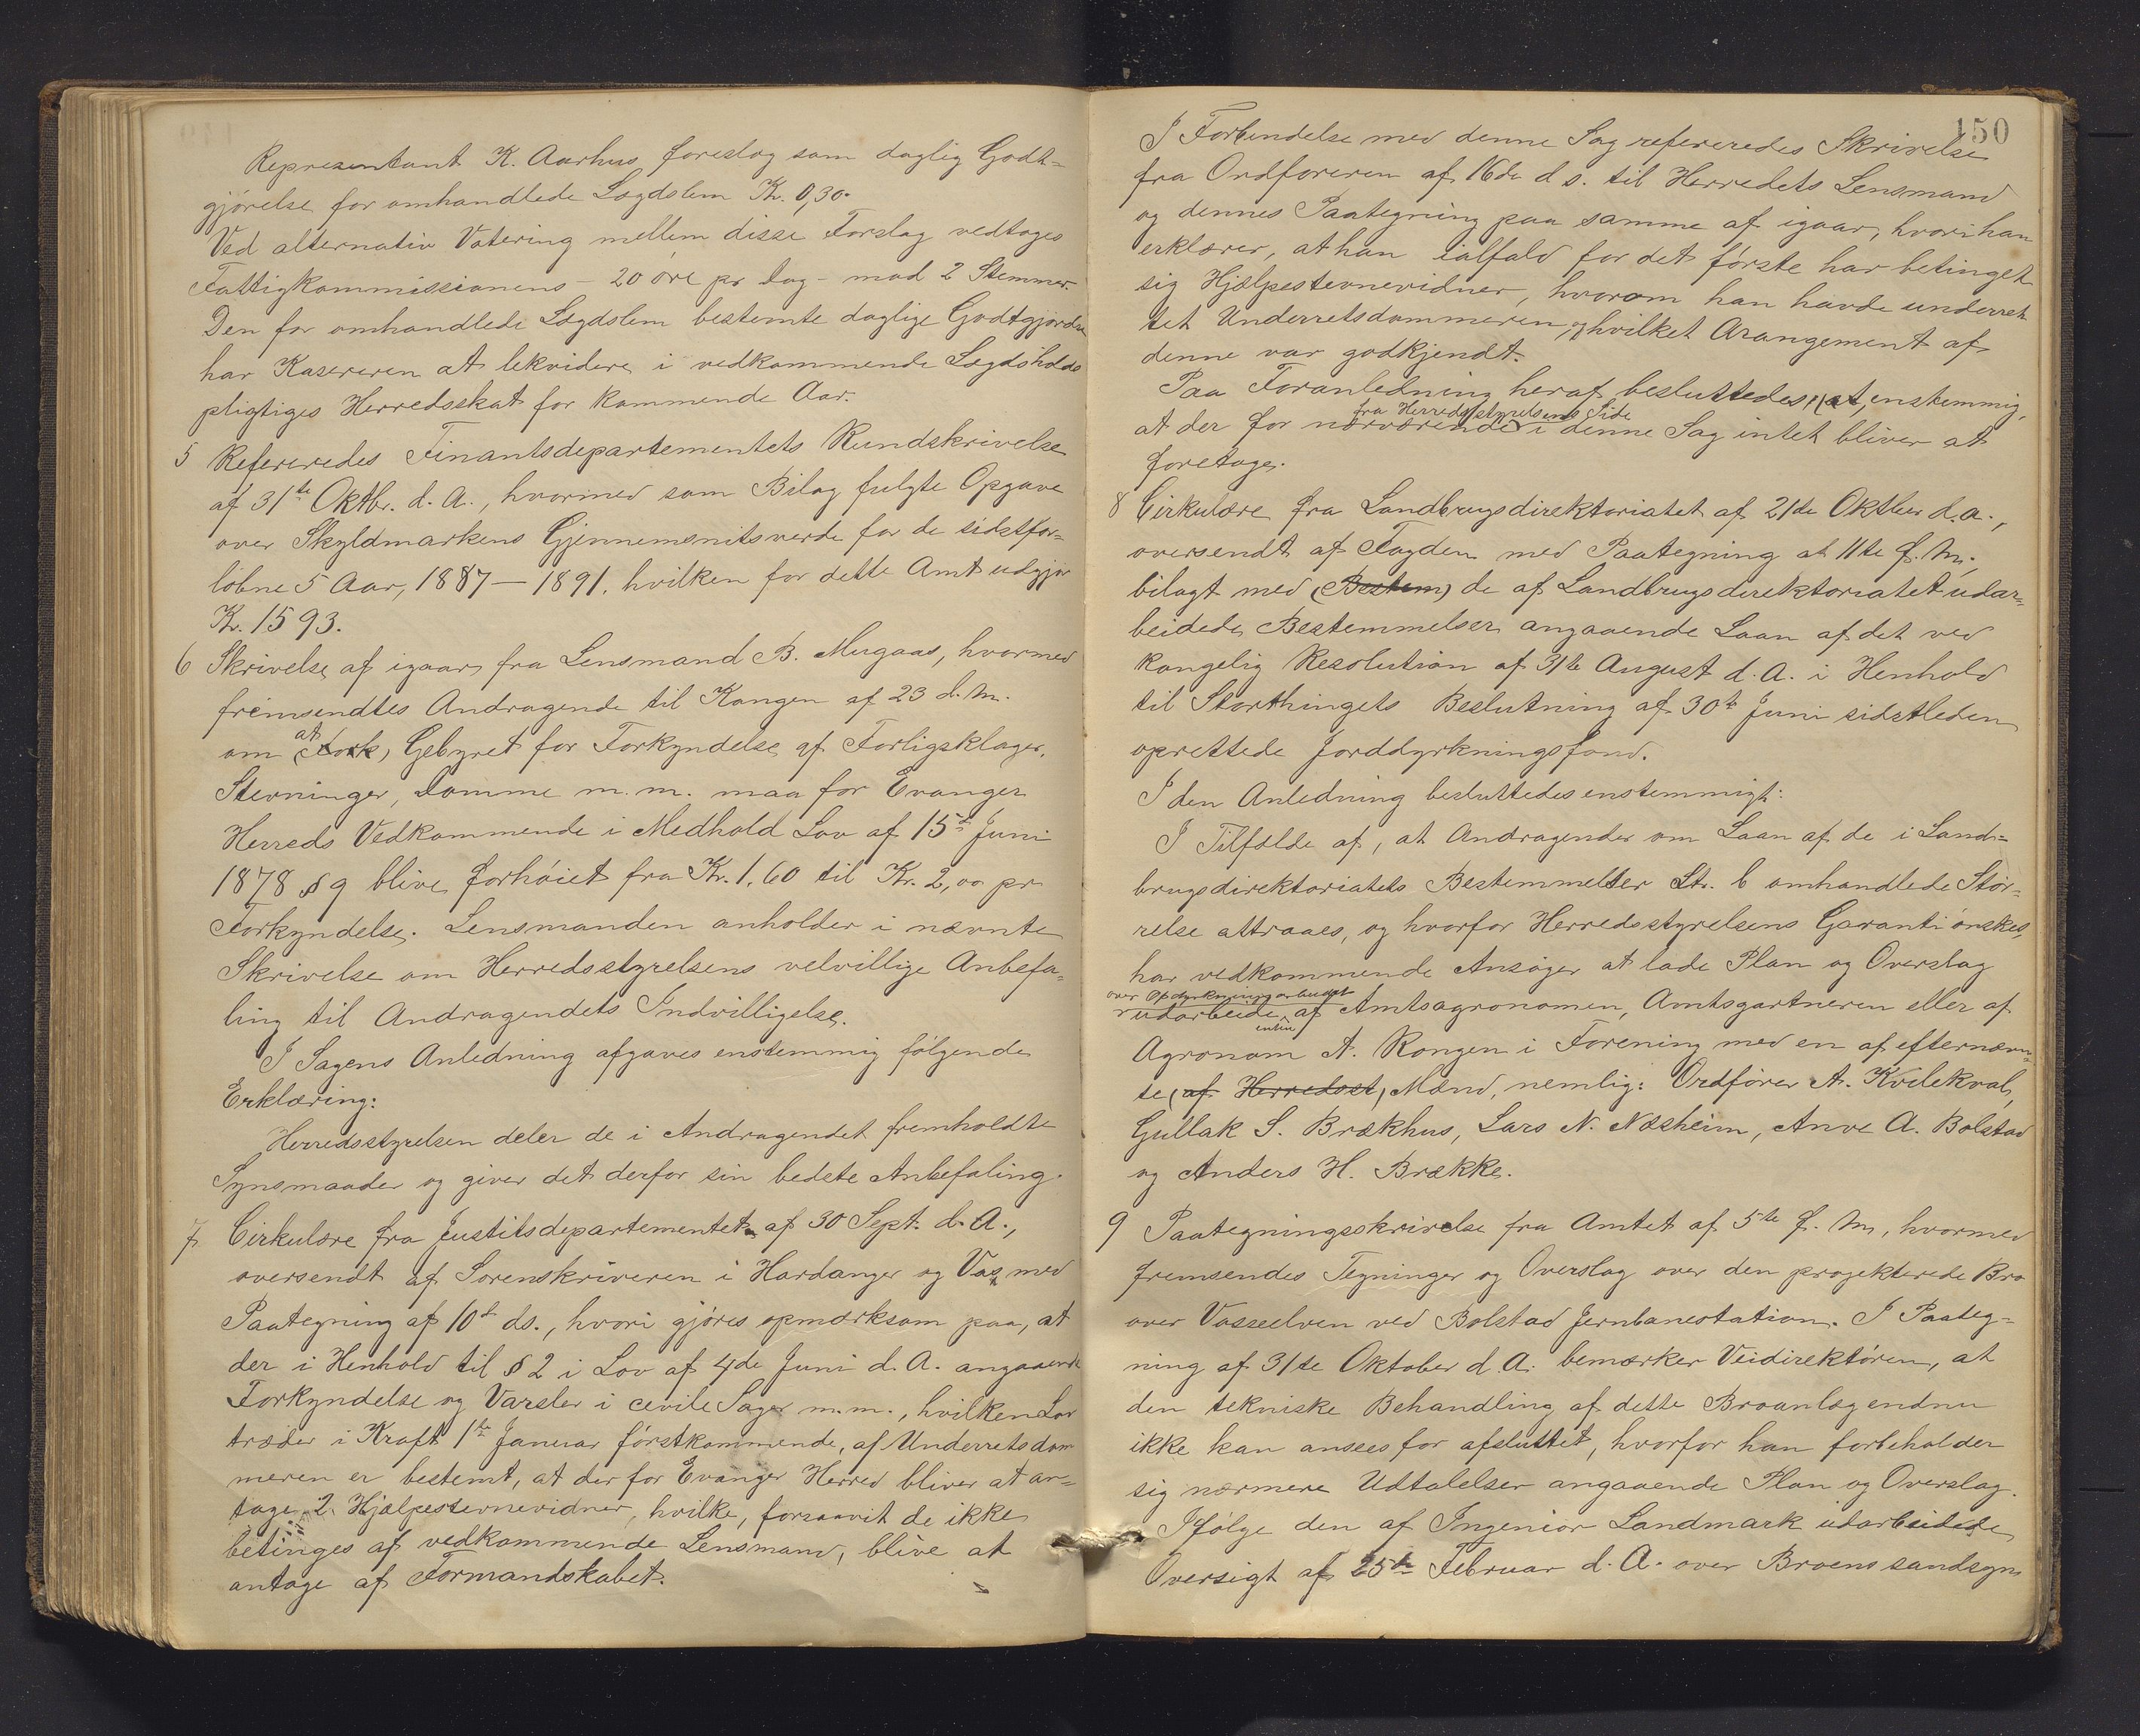 Representant K. Aarhus foreslog som daglig Godt-
gjörelse for omhandlede Lægdslem Kr. 0,30.
Ved alternativ Votering mellem disse Forslag vedtoges
Fattigkommissionens - 20 öre pr Dag - mod 2 Stemmer.
Den for omhandlede Lægdslem bestemte daglige Godtgjörelse
har Kasereren at lekvidere i vedkommende Lægdsholds
pligtiges Herredsskat for kommende Aar.
5 Refereredes Finantsdepartementets Rundskrivelse
af 31te Oktbr. d. A., hvormed som Bilag fulgte Opgave
over Skyldmarkens Gjennemsnitsverde for de sidstfor-
löbne 5 Aar, 1887 - 1891, hvilken for dette Amt udgjør
Kr. 1593.
6 Skrivelse af igaar fra Lensmand B. Mugaas, hvormed
fremsendtes Andragende til Kongen af 23 d. M.
om at (Fork) Gebyret for Forkyndelse af Forligsklager,
Stevninger, Domme m. m. maa for Evanger
Herreds Vedkommende i Medhold Lov af 15de Juni
1878 § 9 blive forhöiet fra Kr. 1.60 til Kr. 2,00 pr
Forkyndelse. Lensmanden anholder i nævnte
Skrivelse om Herredsstyrelsens velvillige Anbefa-
ling til Andragendets Indvilligelse.
I Sagens Anledning afgaves enstemmig fölgende
Erklæring:
Herredsstyrelsen deler de i Andragendet fremholdte
Synsmaader og giver det derfor sin bedste Anbefaling.
7 Cirkulære fra Justitsdepartementet af 30 Sept. d. A.,
oversendt af Sorenskriveren i Hardanger og Vos med
Paategning af 10de ds., hvori gjöres opmærksom paa, at
der i Henhold til § 2 i Lov af 4de Juni d. A. angaaende
Forkyndelse og Varsler i civile Sager m. m., hvilken Lov
træder i Kraft 1ste Januar förstkommende, af Underretsdom
meren er bestemt, at der for Evanger Herred bliver at an-
tage 2 Hjælpestevnevidner, hvilke, forsaavit de ikke
betinges af vedkommende Lensmand, blive at
antage af Formandskabet.
150
I Forbindelse med denne Sag refereredes Skrivelse
fra Ordföreren af 16de d s. til Herredets Lensmand
og dennes Paategning paa samme af igaar, hvori han
erklærer, at han ialfald for det förste har betinget
sig Hjælpestevnevidner, hvorom han havde underret-
tet Underretsdommeren, og hvilket Arangement af
denne var godkjendt.
Paa Foranledning heraf besluttedes (at) enstemmig,
at der for nærværende fra Herredsstyrelsens Side i denne Sag intet bliver at
foretage.
8 Cirkulære fra Landbrugsdirektoriatet af 21de Oktber d. a.,
oversendt af Fogden med Paategning at 11te f. M.,
bilagt med (Bestem) de af Landbrugsdirektoriatet udar-
beidede Bestemmelser angaaende Laan af det ved
kongelig Resolution af 31te August d. A. i Henhold
til Storthingets Beslutning af 30te Juni sidstleden
oprettede Jorddyrkningsfond.
I den Anledning besluttedes enstemmigt:
I Tilfælde af, at Andragender om Laan af de i Land-
brugsdirektoriatets Bestemmelser Ltr. b omhandlede Stör-
relse attraaes, og hvorfor Herredsstyrelsens Garanti önskes,
har vedkommende Ansöger at lade Plan og Overslag
over Opdyrkningsarbeidet
udarbeide enten af Amtsagronomen, Amtsgartneren eller af
Agronom A. Rongen i Forening med en af efternævn-
te (af Herredset) Mænd, nemlig: Ordförer A. Kvilekval,
Gullak S. Brækhus, Lars N. Næsheim, Anve A. Bolstad
og Anders H. Brække.
9 Paategningsskrivelse fra Amtet af 5te f. M., hvormed
fremsendes Tegninger og Overslag over den projekterede Bro
over Vosseelven ved Bolstad Jernbanestation. I Paateg-
ning af 31te Oktober d. A. bemærker Veidirektören, at
den tekniske Behandling af dette Broanlæg endnu
ikke kan ansees for afsluttet, hvorfor han forbeholder
sig nærmere Udtalelser angaaende Plan og Overslag.
Ifölge den af Ingeniör Landmark udarbeidede
Oversigt af 25de Februar d. A. over Broens sandsyn